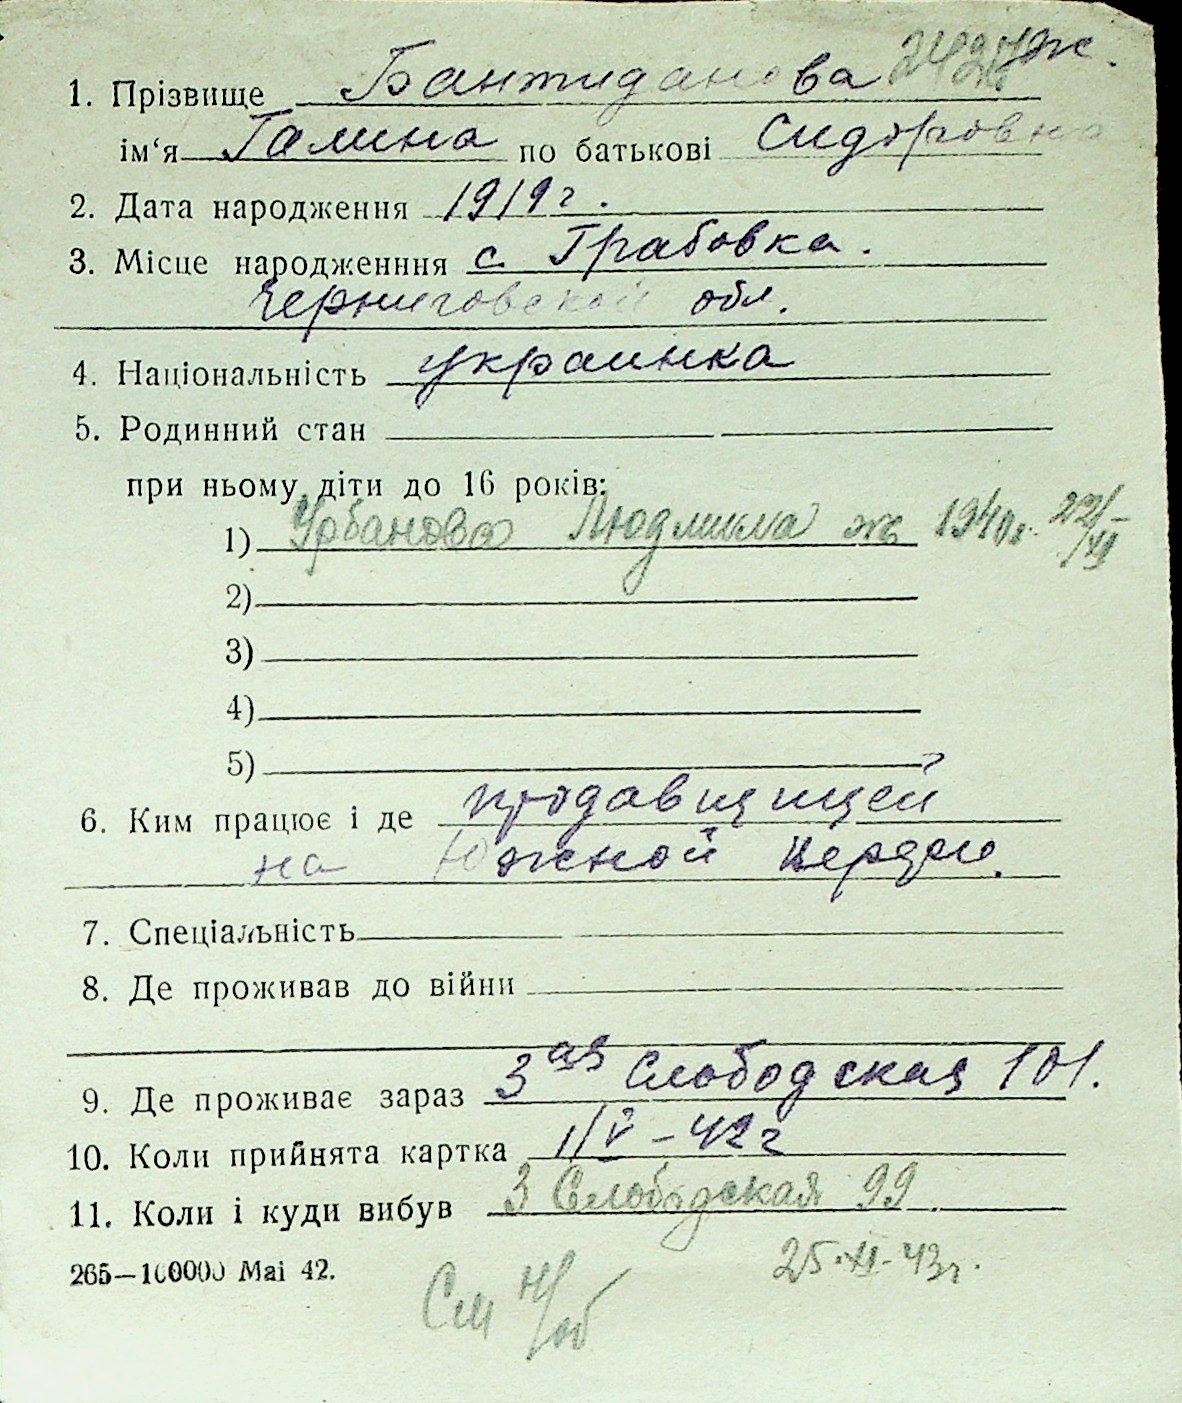 1. Прізвище Бантиданова ж.
ім‘я Галина по батькові Сидоровна
2. Дата народження 1919 г.
3. Місце народженння с. Грабовка.
Черниговской обл.
4. Національність украинка
5. Родинний стан
при ньому діти до 16 років:
1) Урбанова Людмила ж 1940г. 22/XI
2)
3)
4)
5)
6. Ким працює і де продавщицей
на Южной
7. Спеціальність
8. Де проживав до війни
9. Де проживає зараз 3ая Слободская 101.
10. Коли прийнята картка 1/V – 42 г
11. Коли і куди вибув 3 Слободская 99
265—100000 Mai 42. 25.XI-43г.
См н/об